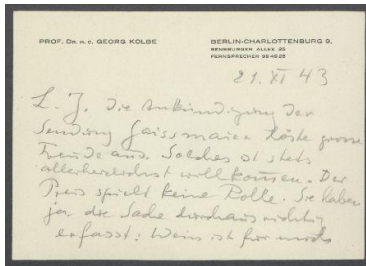 PROF. DR. H. C. GEORG KOLBE
BERLIN-CHARLOTTENBURG 9,
SENSBURGER ALLEE 25
FERNSPRECHER 99 48 25
21. XI 43
L. J. Die Ankündigung der
Sendung Gaissmaier löste grosse
Freude aus. Solches ist stets
allerherzlichst willkommen. Der
Preis spielt keine Rolle. Sie haben
ja die Sache durchaus richtig
erfasst: Wein ist für mich